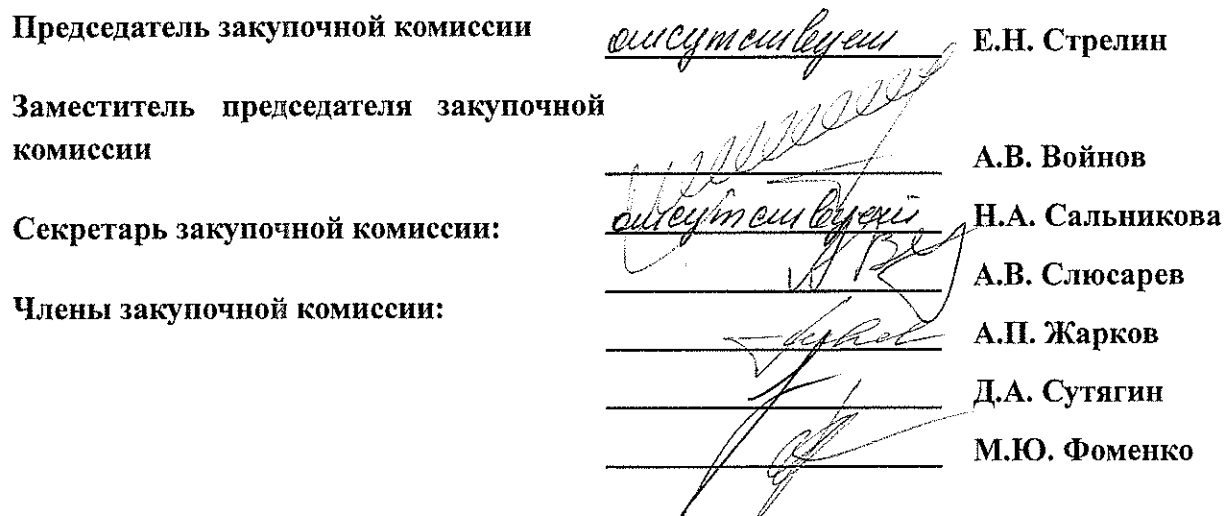 Председатель закупочной комиссии отсутствует Е.Н. Стрелин
Заместитель председателя закупочной
комиссии А.В. Войнов
Секретарь закупочной комиссии: отсутствует Н.А. Сальникова
А.В. Слюсарев
Члены закупочной комиссии:
А.П. Жарков
Д.А. Сутягин
М.Ю. Фоменко